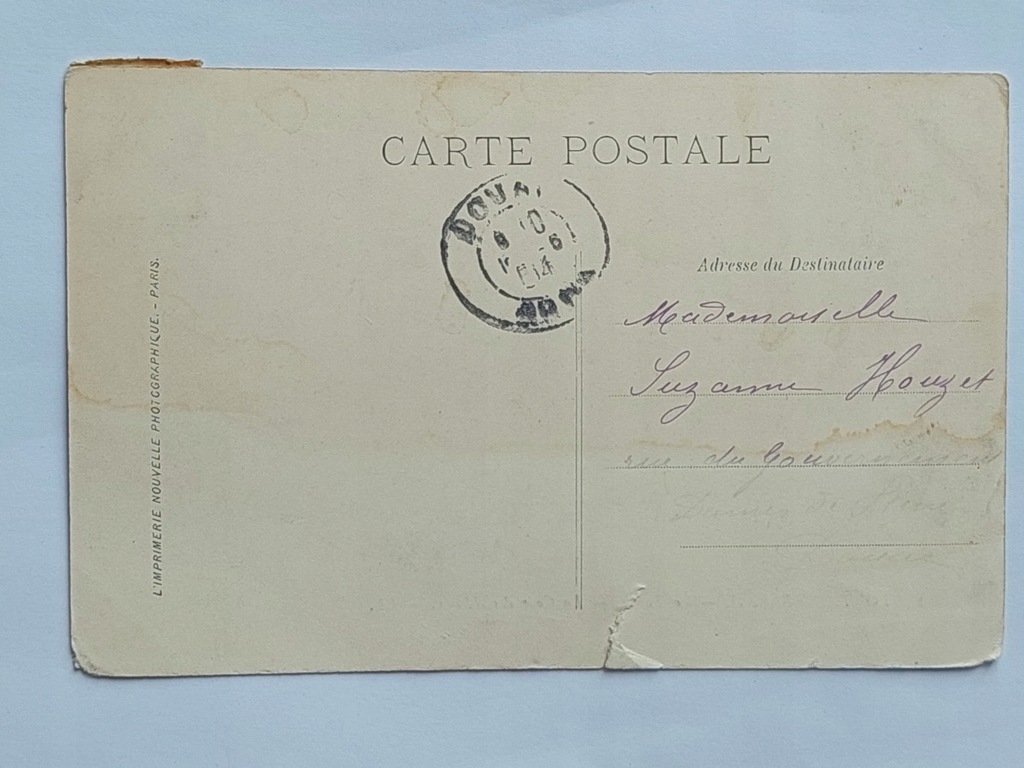 CARTE POSTALE
DOUAI
Adresse du Destinataire
Mademoiselle
Suzanne Houzet
rue du Gouvernement
L'IMPRIMERIE NOUVELLE PHOTOGRAPHIQUE. - PARIS.